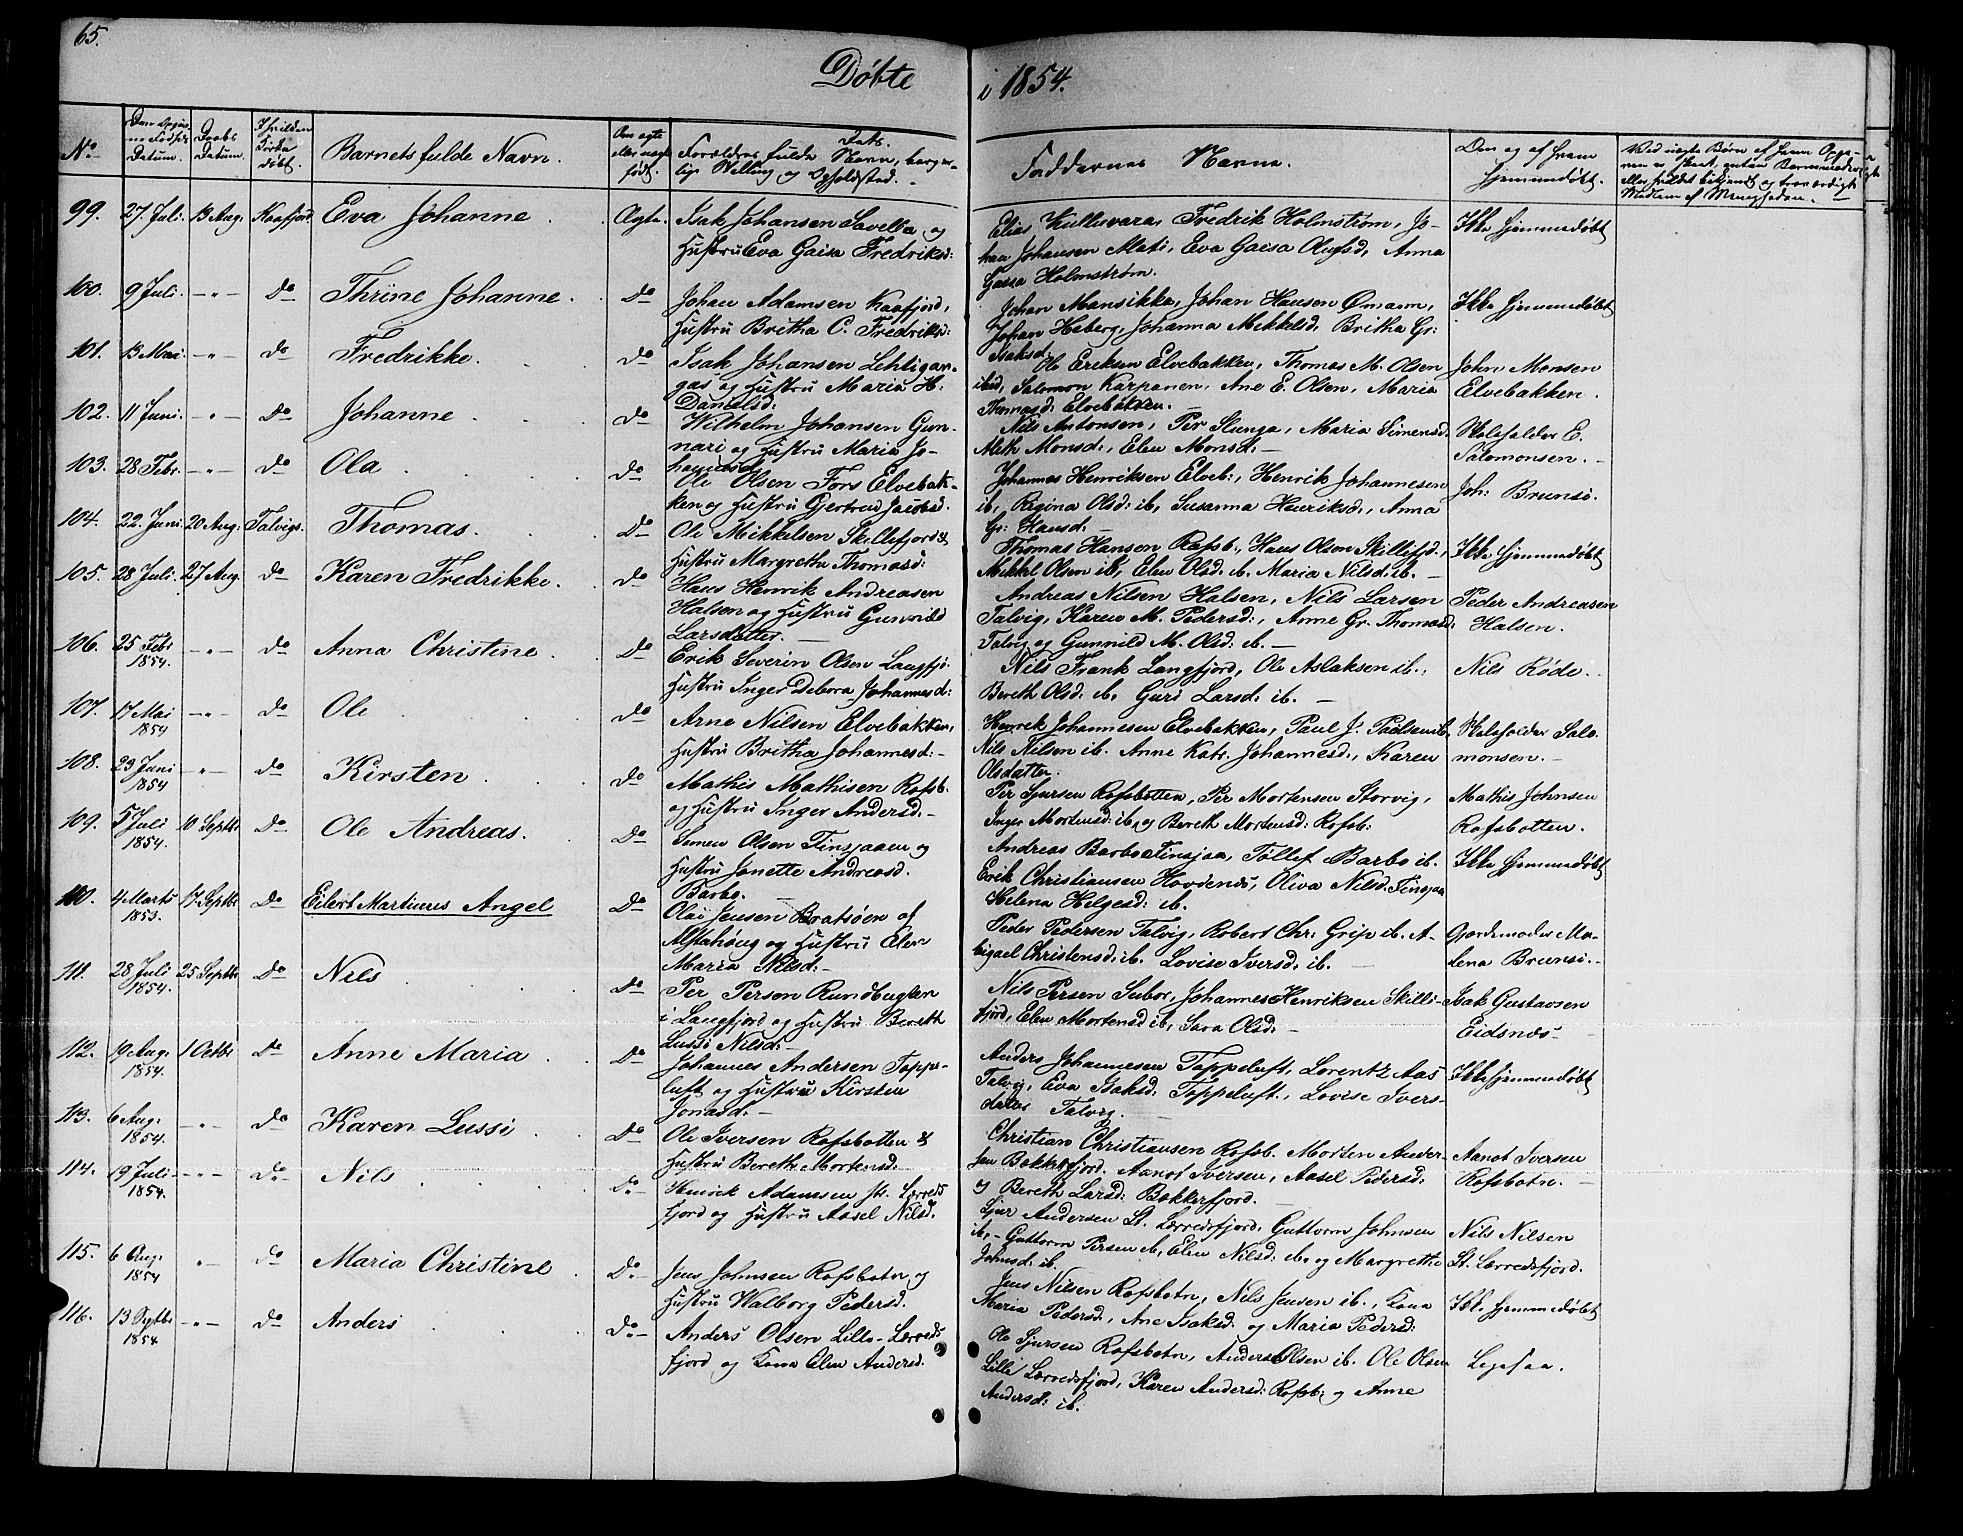 65.
Døbte i 1854.
No
Datum.
Daabs Datum.
Barnets fulde Navn.
Forældres fulde Navn, borgerlige Stilling og Opholdsted.
Faddernes Navne.
Om og af hvem hjemmedøbt.
99. 27. Juli. 13 Aug. Kaafjord Eva Johanne Ægte.
Isak Johansen Savella og
Hustru Eva Gaisa Fredriksd:
Elias Kulluvara, Fredrik Holmstrøm, Jo-
han Johansen Mati, Eva Gaisa Olufsd, Anna
Gaisa Holmstrøm.
Ikke hjemmedøbt
100. 9 Juli. -"- Do Thrine Johanne. Do
Johan Adamsen Kaafjord,
Hustru Britha C. Fredriksd:
Johan Mansikka, Johan Hansen Ømann,
Johan Haberg, Johanna Mikkelsd, Britha Gr:
Isaksd.
Ikke hjemmedøbt
101. 13 Mai -"- do Fredrikke. do
Isak Johansen Lehtigan-
gas og Hustru Maria H.
Danielsd:
Ole Eriksen Elvebakken, Thomas M. Olsen
ibid, Salomon Karpanen, Ane E. Olsen, Maria
Thomasd: Elvebakken.
John Monsen
Elvebakken.
102. 11 Juni. -"- Do Johanne do
Wilhelm Johansen Gun-
nari og Hustru Maria Jo-
hannesd.
Nils Antonsen, Per Slunga, Maria Simensd.
Meth Monsd., Elen Monsd.
E.
Salomonsen.
103. 28 Febr. -"- do Ola do
Ole Olsen Fors Elvebak-
ken og Hustru Gjertrud Jacobsd.
Johannes Henriksen Elveb:, Henrik Johannesen
ib, Regina Olsd: ib, Susanna Henriksd., Anna
Gr: Hansd.
Joh: Brunsi.
104. 22. Juni 20 Aug: Talvigs. Thomas. Do
Ole Mikkelsen Skillefjord &
Hustru Margrethe Thomasd:
Thomas Hansen Rafsb., Hans Olsen Skillefjd.,
Mikkel Olsen ib, Elen Olsd: ib. Maria Nilsd: ib.
Ikke hjemmedøbt
105. 28 Juli. 27 Aug. do Karen Fredrikke. do
Hans Henrik Andreasen
Halsen og Hustru Gunnild
Larsdatter.
Andreas Nilsen Halsen, Nils Larsen
Talvig, Karen M. Pedersd:, Anne Gr. Thomasd:
Talvig og Gunnild M. Olsd: ib.
Peder Andreasen
Halsen.
106. 25 Febr 1854. -"- do Anna Christine. Do
Erik Severin Olsen Langfj.
Hustru Inger Debora Johannesd:
Nils Frank Langfjord, Ole Aslaksen ib.,
Bereth Olsd: ib, Guri Larsd: ib.
Nils Røde.
107. 17 Mai 1854 -"- do Ole do
Arne Nilsen Elvebakken,
Hustru Britha Johannesd:
Henrik Johannesen Elvebakken, Paul J. Paulsen ib,
Nils Nilsen ib. Anne Katr. Johannesd., Karen
Olsdatter.
Salo-
monsen.
108. 29 Juni 1854 -"- do Kirsten do
Mathis Mathisen Rafsb.
og Hustru Inger Andersd.
Per Sjursen Rafsbotten, Per Mortensen Storvig,
Inger Mortensd: ib, og Bereth Mortensd: Rafsb:
Mathis Johnsen
Rafsbotten.
109. 5 Juli 1854. 10 Septbr. Do Ole Andreas. Do
Simen Olsen Tinsjaaen og
Hustru Jonette Andreasd.
Barbo.
Andreas Barbo Tinsjaa, Tollef Barbo ib.
Erik Christiansen Hovdenes, Oliva Nilsd. Tinsjaa
Helena Helgesd: ib.
Ikke hjemmedøbt
110. 4 Marts 1853. 17 Septbr Do Eilert Martinus Angel Do
Olai Jensen Bratsøen af
Alstahoug og Hustru Elen
Maria Nilsd:
Peder Pedersen Talvig, Robert Chr: Grip ib. A-
bigael Christensd: ib. Lovise Iversd: ib.
Gjordemoder Ma-
lena Brunsi.
111. 28 Juli 1854. 25 Septbr Do Nils Do
Per Persen Rundbugten
i Langfjord og Hustru Bereth
Lussi Nilsd:
Nils Persen Subor, Johannes Henriksen Skille-
fjord, Elen Mortensd ib, Sara Olsd:
Isak Gustavsen
Eidsnæs
112. 19 Aug. 1854. 1 Octbr Do Anne Maria Do
Johannes Andersen Toppe-
luft og Hustru Kirsten
Jonasd.
Anders Johannesen Toppeluft, Lorentz Aas
Talvig, Eva Isaksd: Toppeluft, Lovise Ivers-
datter Talvig.
Ikke hjemmedøbt
113. 6 Aug. 1854. -"- do Karen Lussi Do
Ole Iversen Rafsbotten &
Hustru Berethe Mortensd
Christian Christiansen Rafsb. Morten Ander-
sen Bokkefjord. Aanot Iversen, Aasel Pedersd.
og Bereth Larsd: Bokkerfjord.
Aanot Iversen
Rafsbotn.
114. 19 Juli 1854. -"- do. Nils Do
Henrik Adamsen St. Lerreds-
fjord og Hustru Aasel Nilsd.
Sjur Andersen St. Lerredsfjord, Guttorm Johnsen
ib, Guttorm Persen ib, Elen Nilsd: ib. og Margrethe
Johnsd: ib.
Nils Nilsen
St. Lerredsfjord.
115. 6 Aug. 1854 "- do Maria Christine Do.
Jens Johnsen Rafsbotn og
Hustru Walborg Pedersd.
Jens Nilsen Rafsbotn, Nils Jensen ib., Kona
Maria Pedersd., Ane Isaksd: og Maria Pedersd:
Ikke hjemmedøbt
116. 13 Septbr 1854. -"- do Anders Do.
Anders Olsen Lille-Lerreds-
fjord og Kona Elen Andersd.
Ole Sjursen Rafsbotn, Anders Olsen ib. Ole Olsen
Lille Lerredsfjord, Karen Andersd: Rafsb: og Anne
Andersd: ib.
Ligesaa.